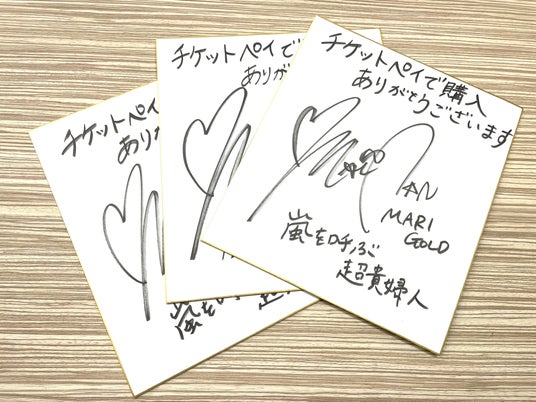 チケットペイで
ありが
チケットペイで購入
ありがとうございます
AN
MARI
GOLD
嵐を呼ぶ
超貴婦人
チケットペイ
ありが